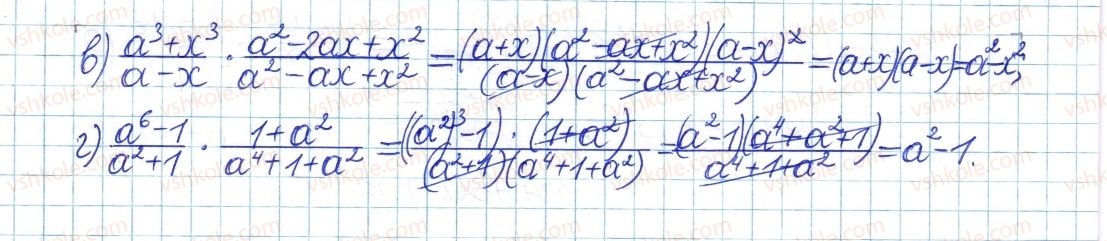 в) (a³+x³)/(a-x) · (a²-2ax+x²)/(a²-ax+x²) = ((a+x)(a²-ax+x²)(a-x)²)/((a-x)(a²-ax+x²)) = (a+x)(a-x) = a²-x²;
г) (a⁶-1)/(a²+1) · (1+a²)/(a⁴+1+a²) = (((a²)³-1)·(1+a²))/((a²+1)(a⁴+1+a²)) = ((a²-1)(a⁴+a²+1))/(a⁴+1+a²) = a²-1.
vshkole.com